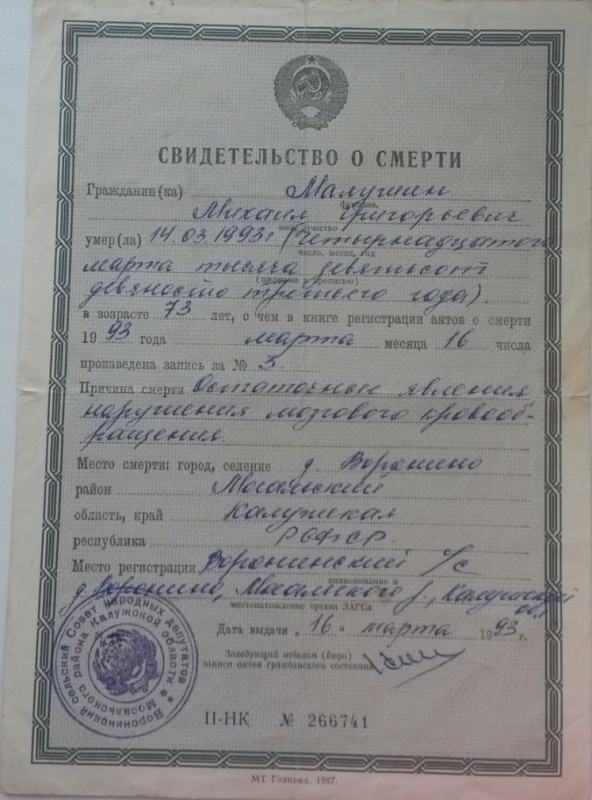 СВИДЕТЕЛЬСТВО О СМЕРТИ
Гражданин(ка) Малушин
фамилия,
Михаил Григорьевич
имя, отчество
умер(ла) 14.03.1993г (Четырнадцатого
число, месяц, год
марта тысяча девятьсот
(цифрами и прописью)
девяносто третьего года).
в возрасте 73 лет, о чем в книге регистрации актов о смерти
1993 года марта месяца 16 числа
произведена запись за № 3.
Причина смерти Остаточные явления
нарушения мозгового кровооб-
ращения.
Место смерти: город, селение д. Воронино
район Мосальский
область, край Калужская
республика РСФСР
Место регистрации Воронинский с/с
наименование и
д. Воронино, Мосальского р., Калужской обл
местонахождение органа ЗАГСа
Дата выдачи „16" марта 1993 г.
Заведующий отделом (бюро)
записи актов гражданского состояния
Воронинский сельский Совет народных депутатов
Мосальского района Калужской области
II-НК № 266741
МТ Гознака. 1987.